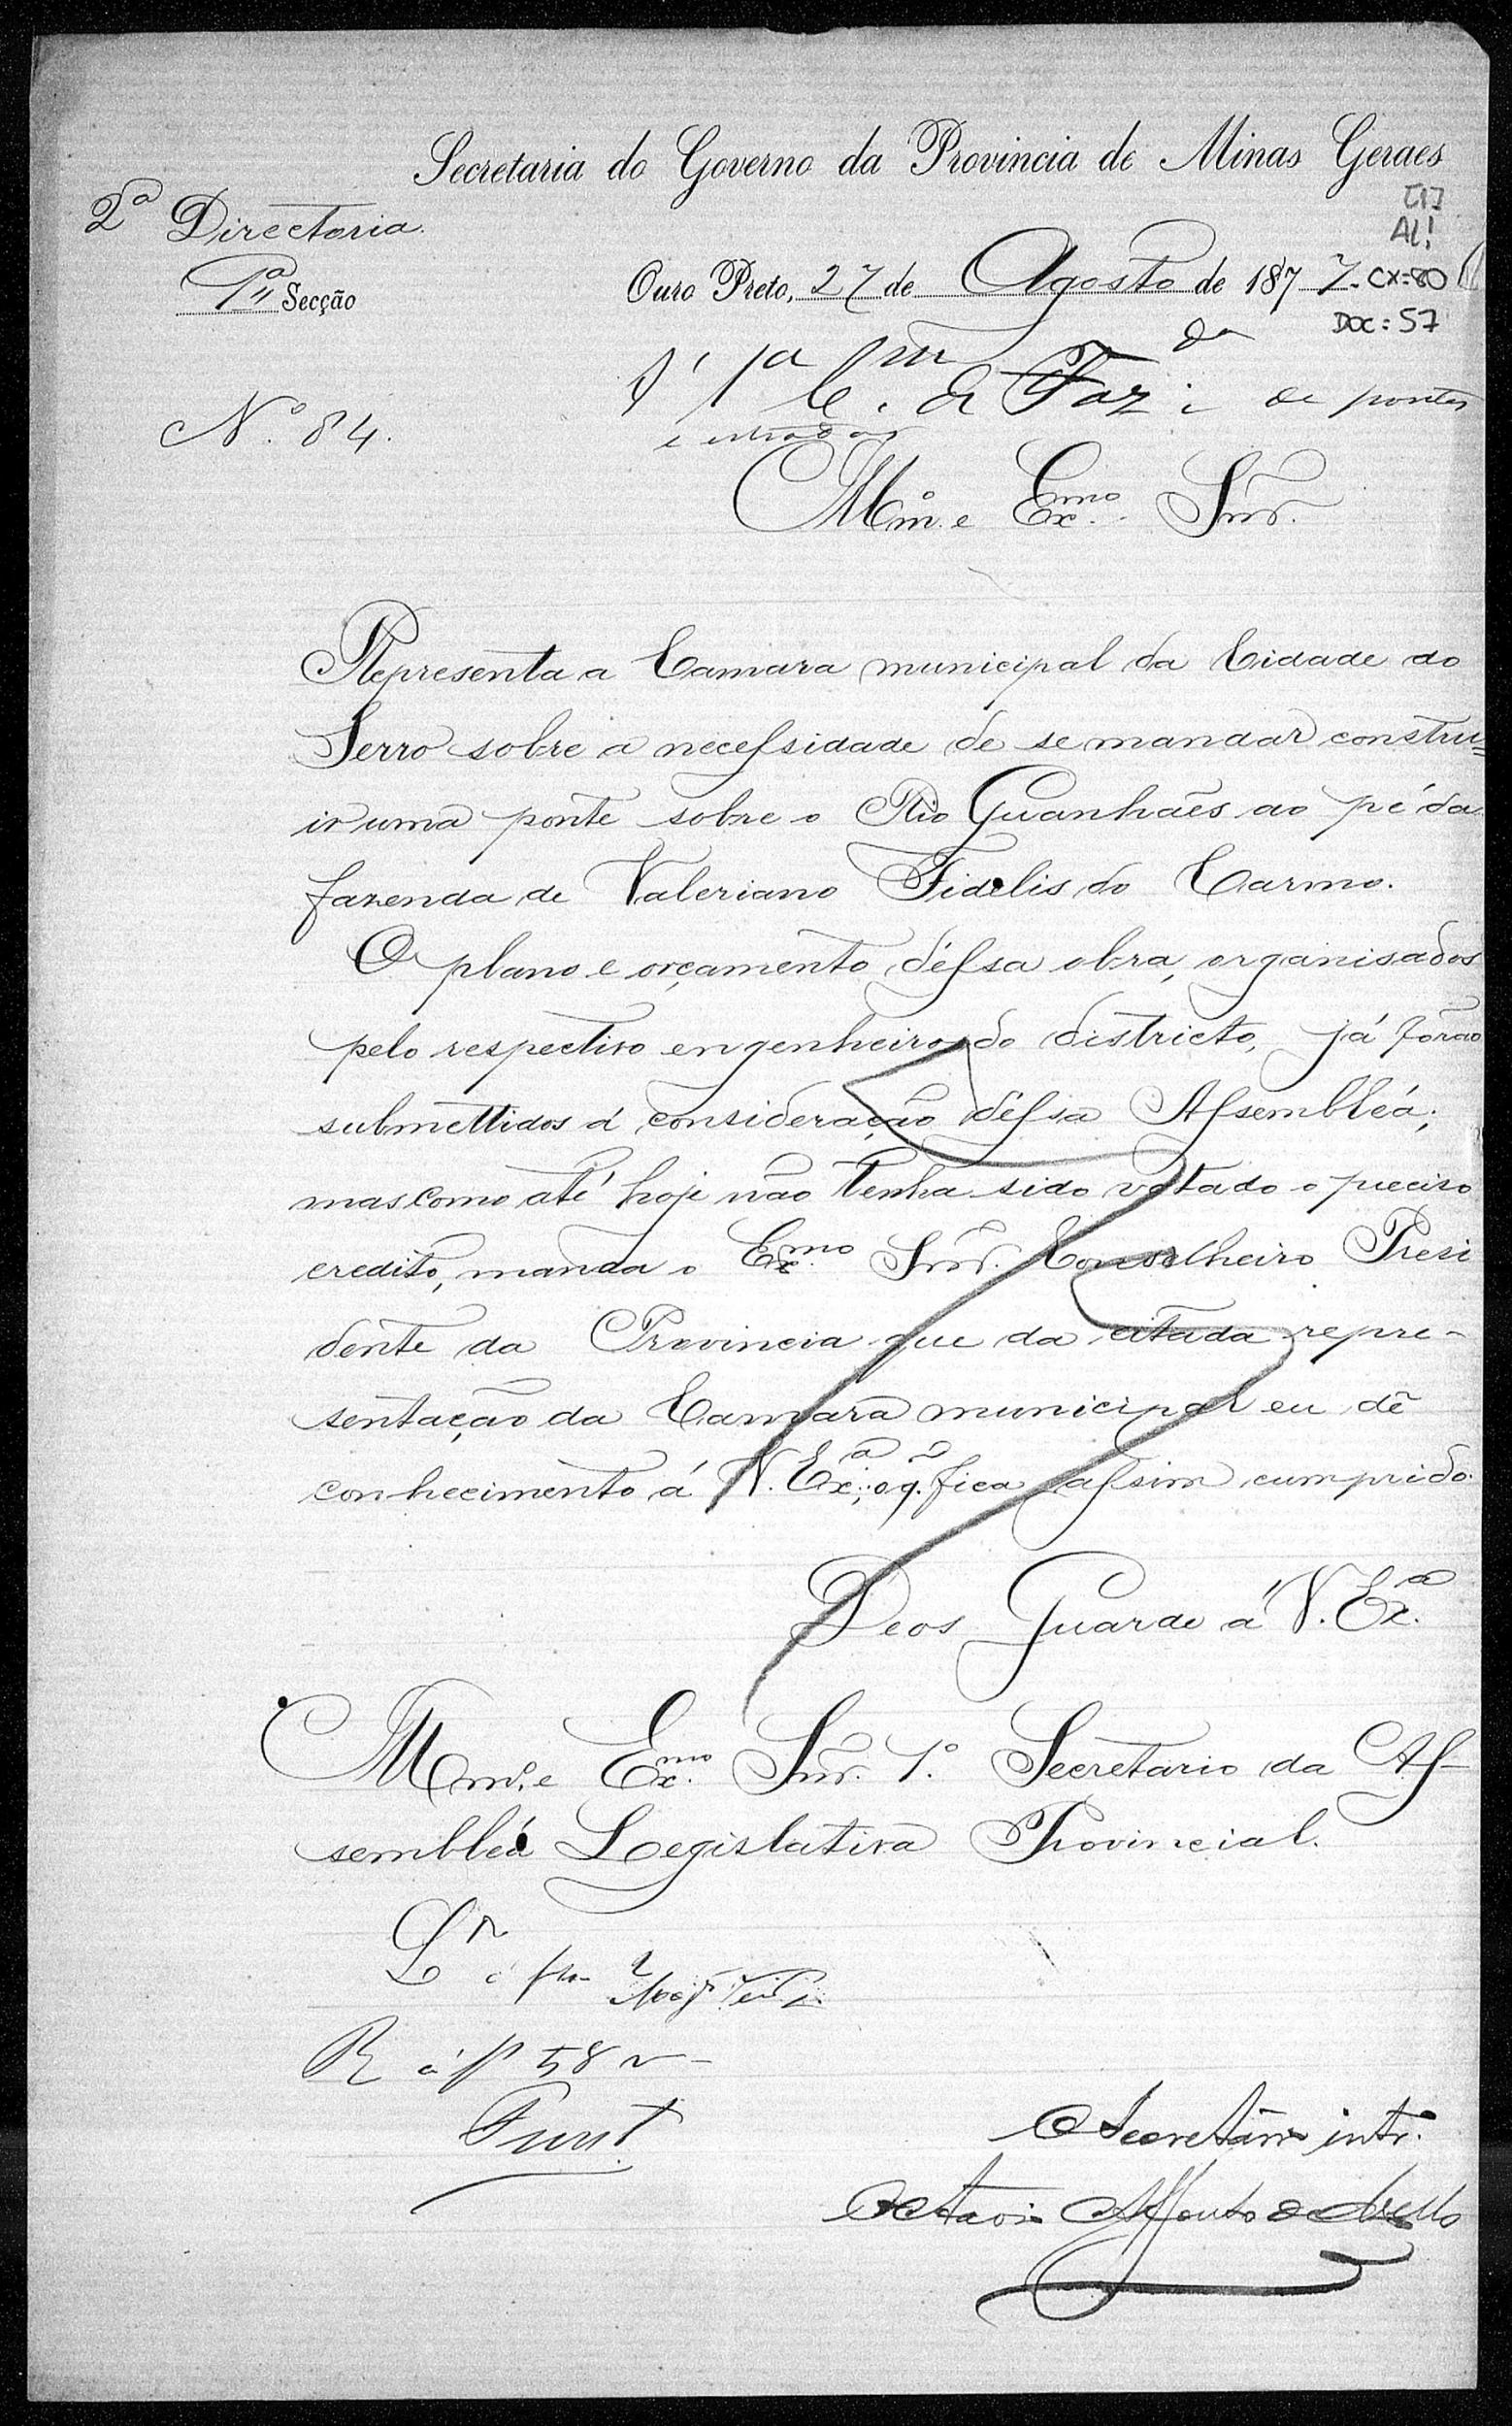 Secretaria do Governo da Provincia de Minas Geraes
2ª Directoria.
1ª Secção
[1]
AL!
Ouro Preto, 27 de Agosto de 1877.
CX=80
DOC=57
Á 1ª C.m de Faz.da e de pontes
e estradas
Nº 84.
Illmº e Exmo. Snr.
Representa a Camara municipal da Cidade do
Serro sobre a necessidade de se mandar constru=
ir uma ponte sobre o Rio Guanhães ao pé da
fazenda de Valeriano Fidelis do Carmo.
O plano e orçamento d'essa obra, organisados
pelo respectivo engenheiro do districto, já forão
submettidos á consideração d'essa Assembléa;
mas como até hoje não tenha sido votado o preciso
credito, manda o Exmo. Snr. Conselheiro Presi
dente da Provincia que da citada repre-
sentação da Camara municipal eu dê
conhecimento á V. Exª; o q. fica assim cumprido.
Deos Guarde a V. Exª.
Illmº e Exmo. Snr. 1º Secretario da As-
sembléa Legislativa Provincial.
R á f 58 v
O Secretario intº.
Octavio Affonso de Mello